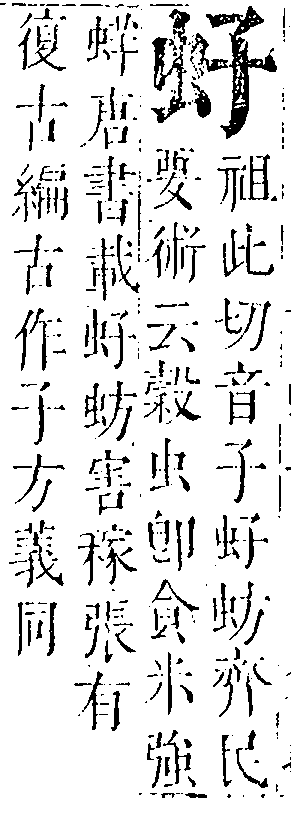 虸
祖此切音子虸蚄齊民
要術云穀虫卽食米強
蛘唐書載虸蚄害稼張有
復古編古作子方義同